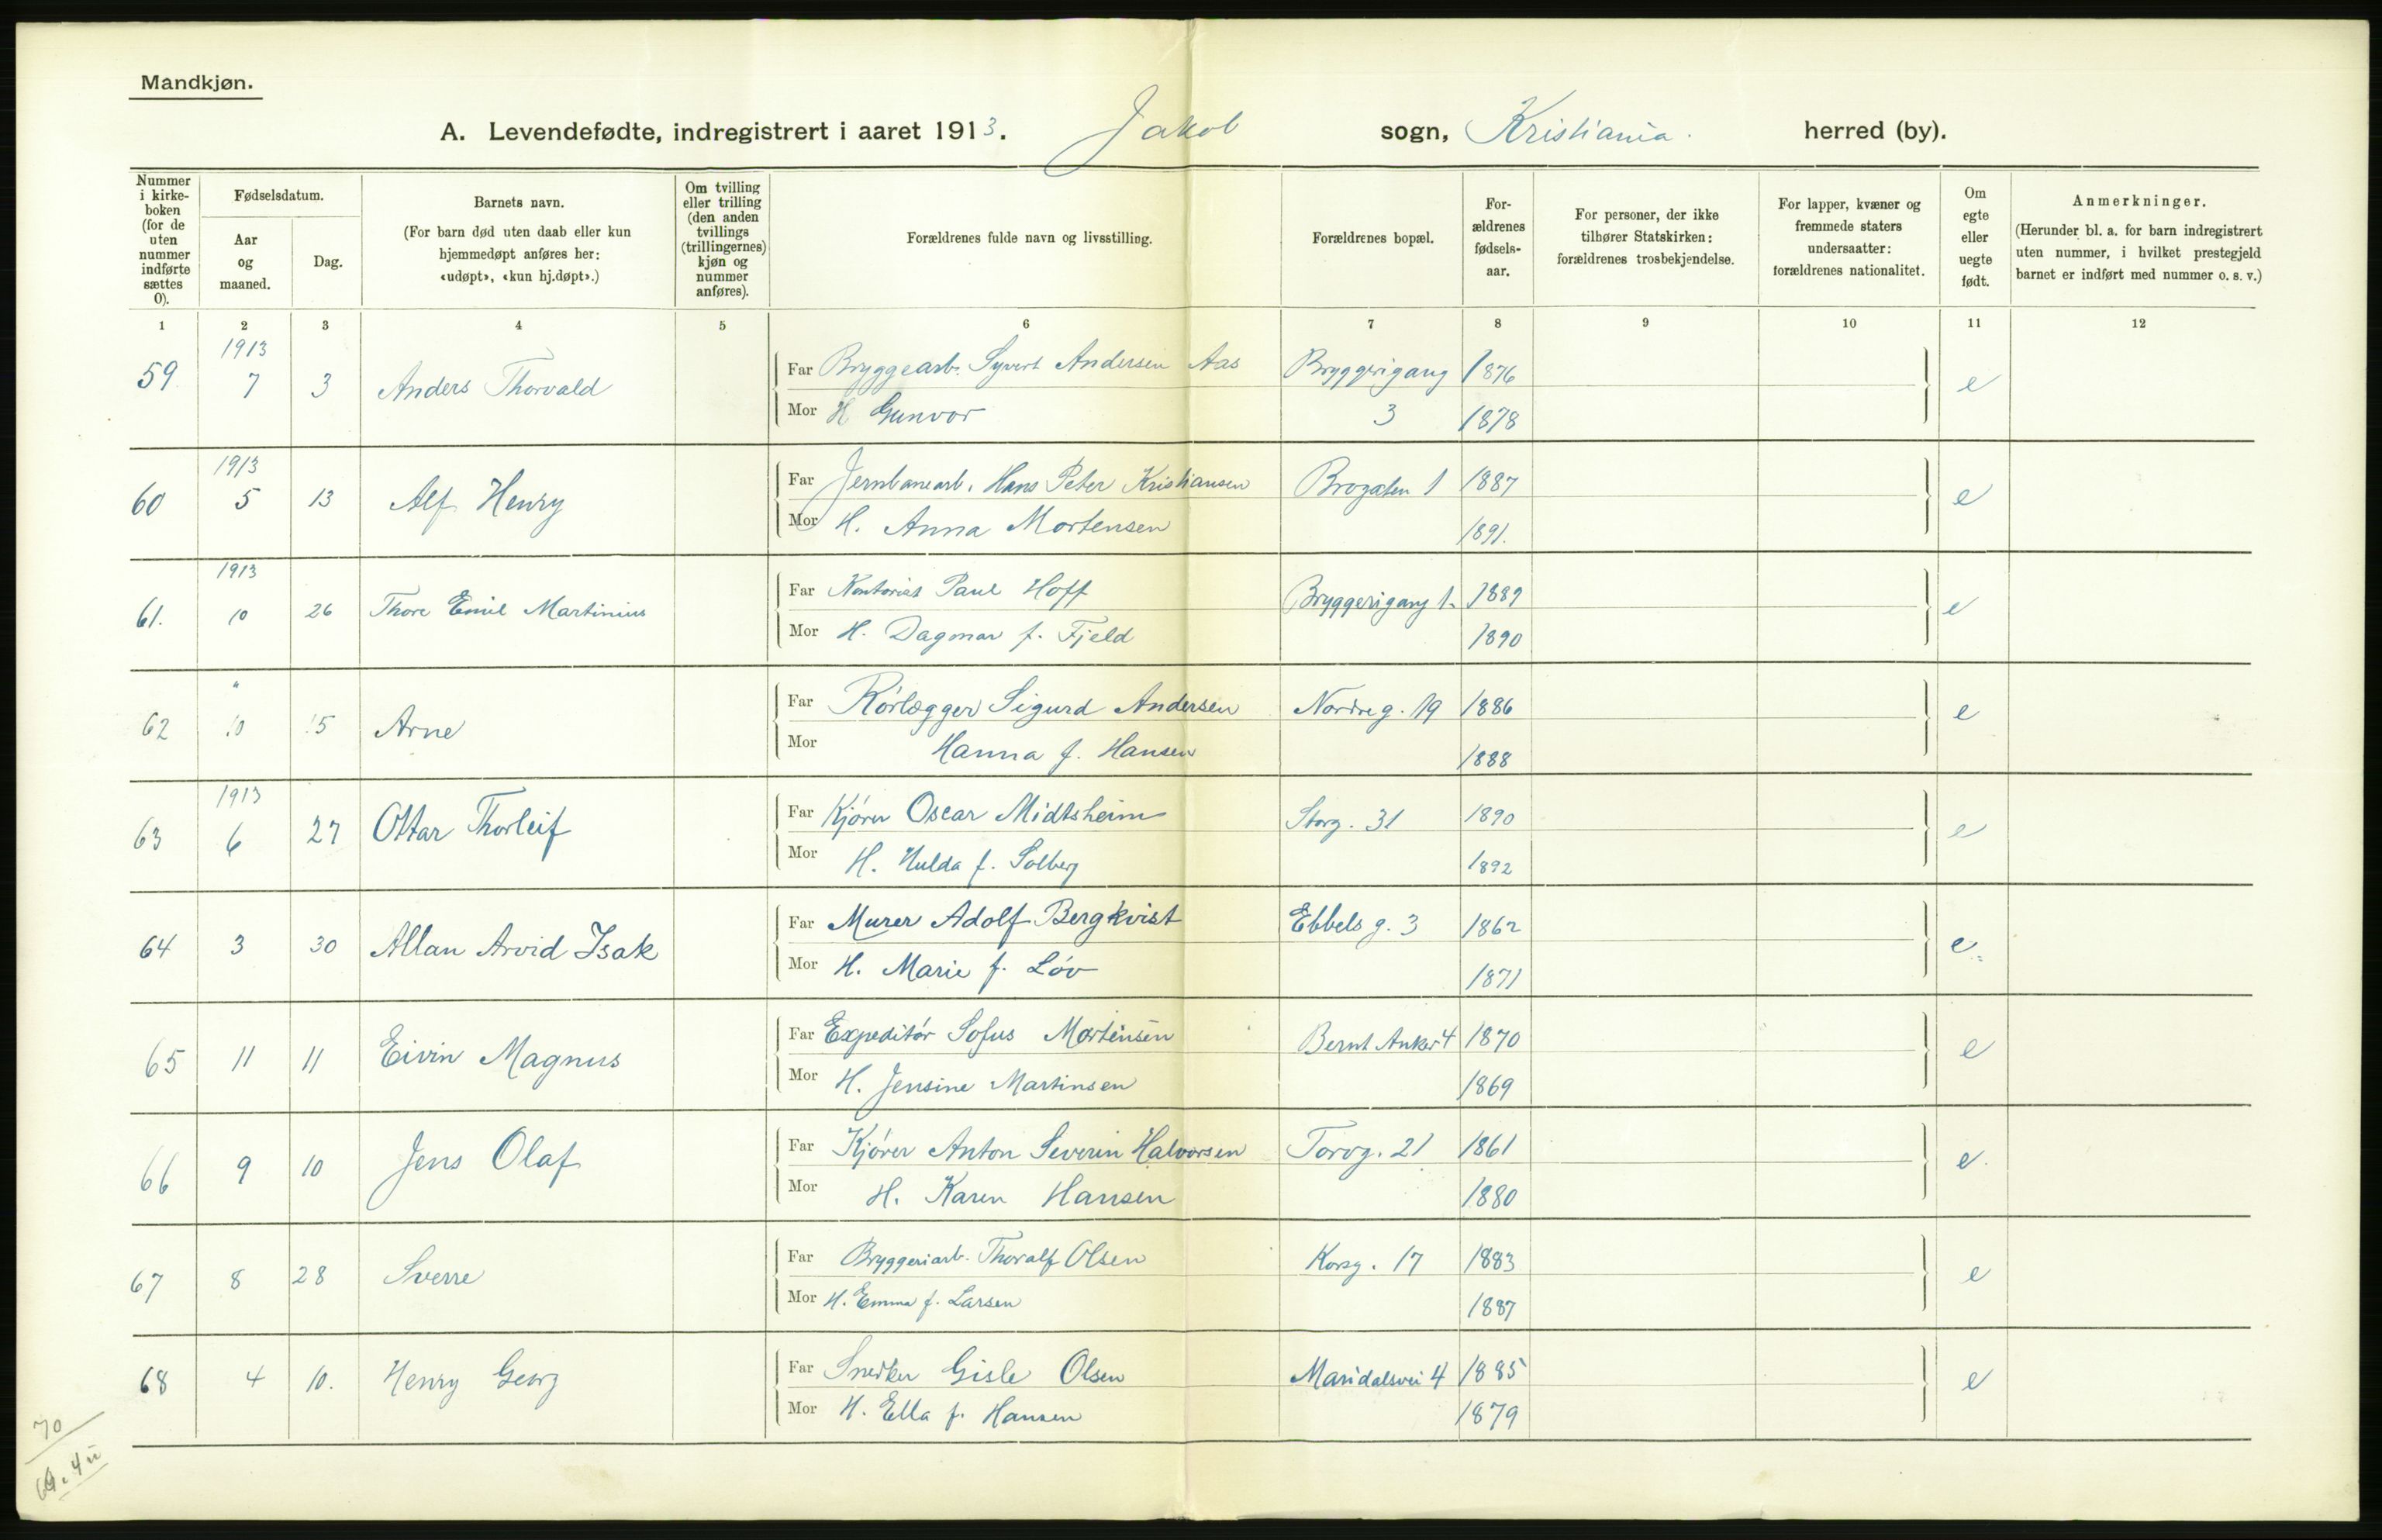 Mandkjøn.
A. Levendefødte, indregistrert i aaret 1913. Jakob sogn, Kristiania. herred (by).
Nummer i kirke-boken (for de uten nummer indførte sættes 0).
Fødselsdatum.
Aar og maaned.
Dag.
Barnets navn.
(For barn død uten daab eller kun hjemmedøpt anføres her: «udøpt», «kun hj.døpt».)
Om tvilling eller trilling (den anden tvillings (trillingernes) kjøn og nummer anføres).
Forældrenes fulde navn og livsstilling.
Forældrenes bopæl.
For-ældrenes fødsels-aar.
For personer, der ikke tilhører Statskirken: forældrenes trosbekjendelse.
For lapper, kvæner og fremmede staters undersaatter: forældrenes nationalitet.
Om egte eller uegte født.
Anmerkninger.
(Herunder bl. a. for barn indregistrert uten nummer, i hvilket prestegjeld barnet er indført med nummer o. s. v.)
1 2 3 4 5 6 7 8 9 10 11 12
1913
59 7 3 Anders Thorvald Far Bryggearb. Syvert Andersen Aas Bryggerigang 1876 e
Mor H Gunvor 3 1878
1913
60 5 13 Alf Henry Far Jernbanearb. Hans Peter Kristiansen Brogaten 1 1887 e
Mor H. Anna Mortensen 1891.
1913
61. 10 26 Thore Emil Martinius Far Kontorist Paul Hoff Bryggerigang 1. 1889 e
Mor H. Dagmar f. Fjeld 1890
"
62 10 15 Arne Far Rörlægger Sigurd Andersen Nordreg. 19 1886 e
Mor Hanna f. Hansen 1888
1913
63 6 27 Ottar Thorleif Far Kjörer Oscar Midtsheim Storg. 31 1890 e
Mor H. Hulda f. Solberg 1892
64 3 30 Allan Arvid Isak Far Murer Adolf Bergkvist Ebbels g. 3 1862 e
Mor H. Marie f. Löv 1871
65 11 11 Eivin Magnus Far Expeditör Sofus Mortensen Bernt Anker 4 1870 e
Mor H. Jensine Martinsen 1869
66 9 10 Jens Olaf Far Kjörer Anton Severin Halvorsen Torvg. 21 1861 e
Mor H. Karen Hansen 1880
67 8 28 Sverre Far Bryggeriarb. Thoralf Olsen Korsg. 17 1883 e
Mor H. Emma f. Larsen 1887
68 4 10. Henry Georg Far Snedker Gisle Olsen Maridalsvei 4 1885 e
Mor H. Ella f. Hansen 1879
70